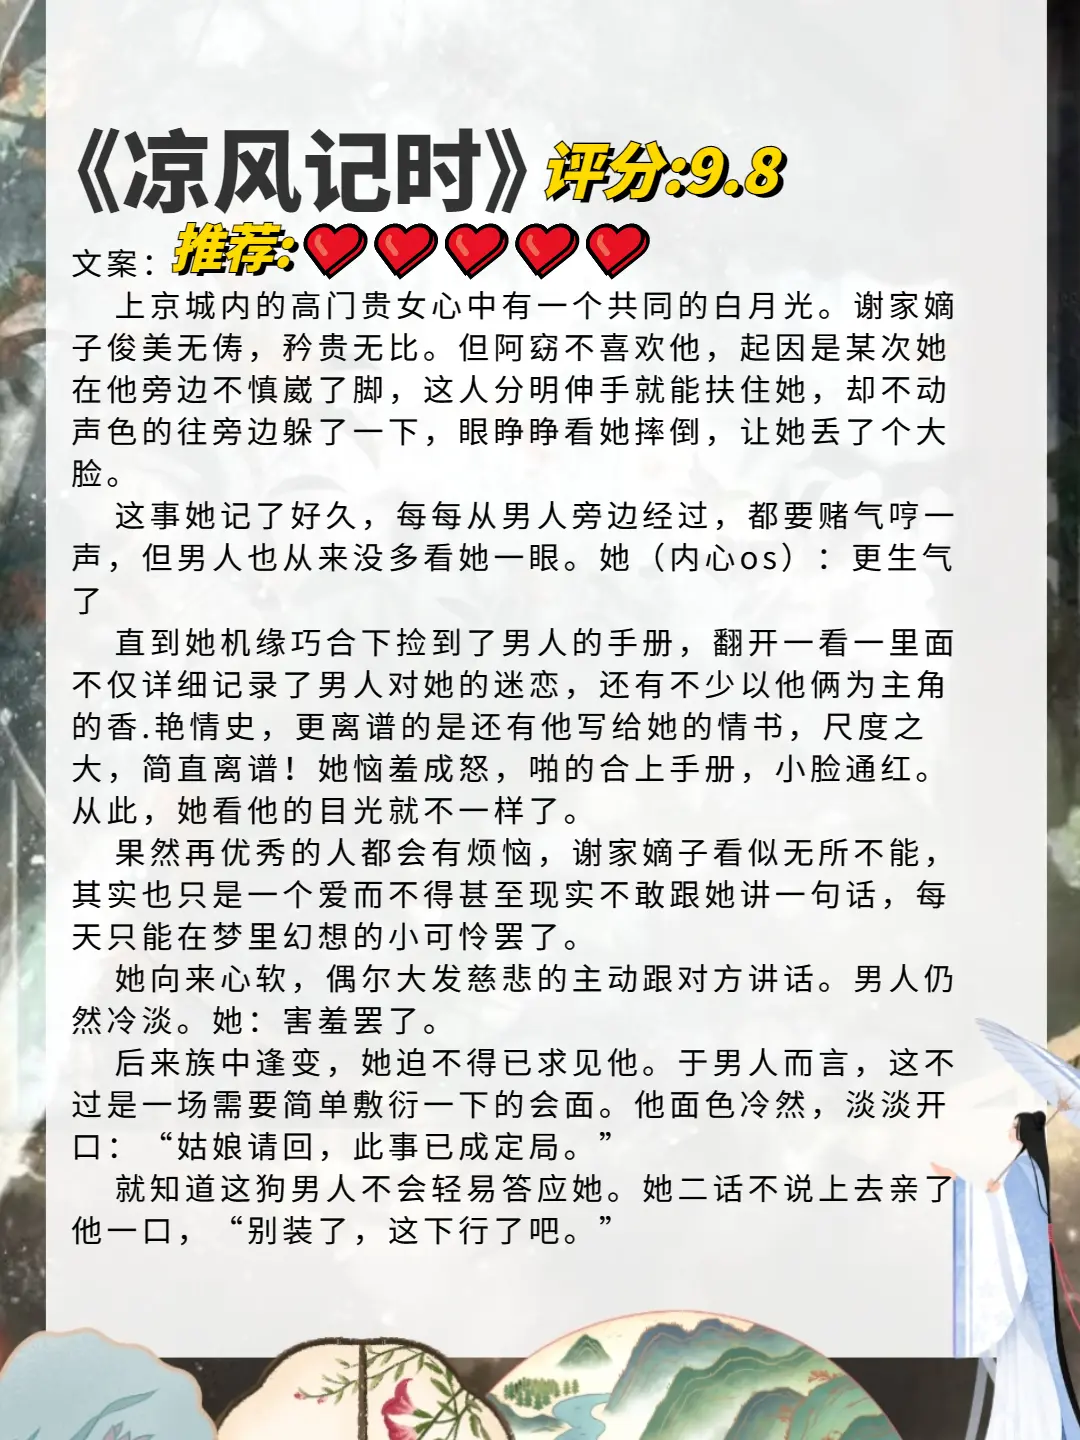 《凉风记时》评分:9.8
推荐:
文案：
上京城内的高门贵女心中有一个共同的白月光。谢家嫡
子俊美无俦，矜贵无比。但阿窈不喜欢他，起因是某次她
在他旁边不慎崴了脚，这人分明伸手就能扶住她，却不动
声色的往旁边躲了一下，眼睁睁看她摔倒，让她丢了个大
脸。
这事她记了好久，每每从男人旁边经过，都要赌气哼一
声，但男人也从来没多看她一眼。她（内心os）：更生气
了
直到她机缘巧合下捡到了男人的手册，翻开一看一里面
不仅详细记录了男人对她的迷恋，还有不少以他俩为主角
的香.艳情史，更离谱的是还有他写给她的情书，尺度之
大，简直离谱！她恼羞成怒，啪的合上手册，小脸通红。
从此，她看他的目光就不一样了。
果然再优秀的人都会有烦恼，谢家嫡子看似无所不能，
其实也只是一个爱而不得甚至现实不敢跟她讲一句话，每
天只能在梦里幻想的小可怜罢了。
她向来心软，偶尔大发慈悲的主动跟对方讲话。男人仍
然冷淡。她：害羞罢了。
后来族中逢变，她迫不得已求见他。于男人而言，这不
过是一场需要简单敷衍一下的会面。他面色冷然，淡淡开
口：“姑娘请回，此事已成定局。”
就知道这狗男人不会轻易答应她。她二话不说上去亲了
他一口，“别装了，这下行了吧。”